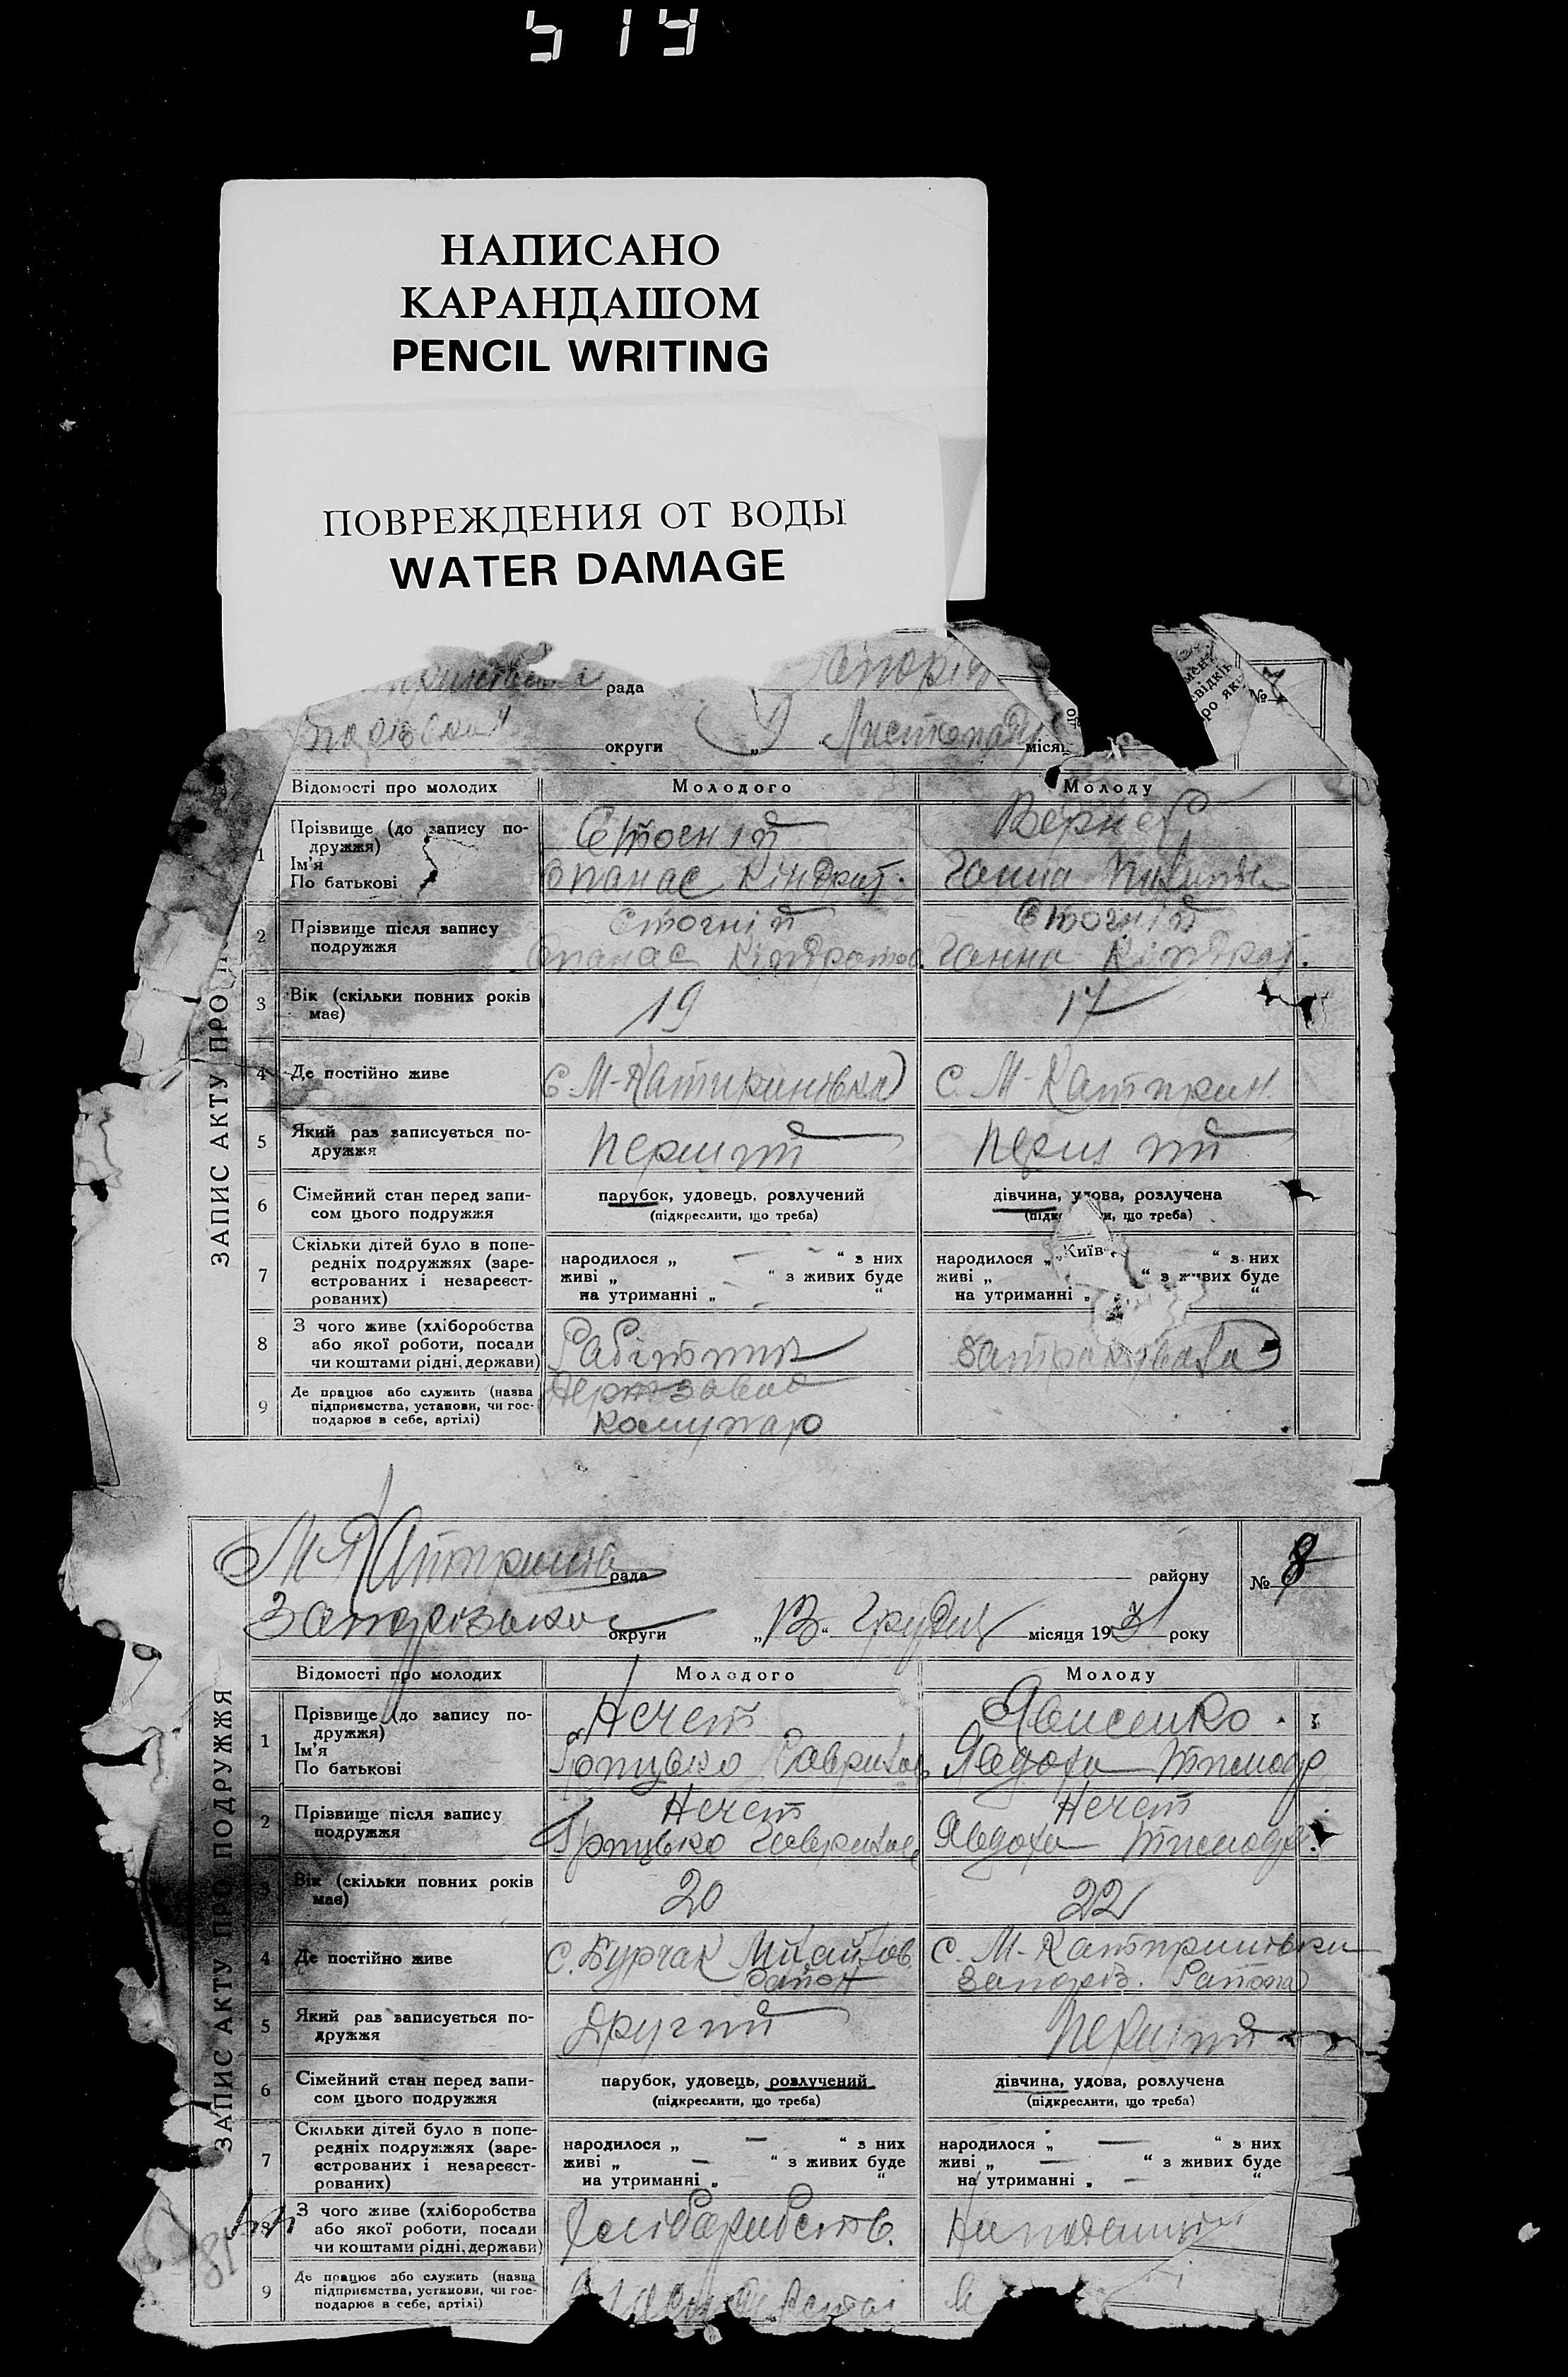 514
НАПИСАНО
КАРАНДАШОМ
PENCIL WRITING
ПОВРЕЖДЕНИЯ ОТ ВОДЫ
WATER DAMAGE
рада
№
округи „9“ Листопаду
Відомості про молодих Молодого Молоду
ЗАПИС АКТУ ПРО
1 Прізвище (до запису по-
дружжя)
Ім'я
По батькові
Стогній
Опанас Кіндрат.
Вернер
Ганна
2 Прізвище після запису
подружжя
Стогній
Опанас Кіндратов.
Стогній
Ганна
3 Вік (скільки повних років
має)
19
17
4 Де постійно живе
С. М-Катиринівка
С. М-Катирин.
5 Який раз записується по-
дружжя
Перший
Перший
6 Сімейний стан перед запи-
сом цього подружжя
парубок, удовець, розлучений
(підкреслити, що треба)
дівчина, удова, розлучена
що треба)
7 Скільки дітей було в попе-
редніх подружжях (заре-
єстрованих і незареєст-
рованих)
народилося „ — “ з них
живі „ — “ з живих буде
на утриманні „ — “
народилося „ “ з них
живі „ “ з живих буде
на утриманні „ “
Київ
8 З чого живе (хліборобства
або якої роботи, посади
чи коштами рідні, держави)
Рабітник
9 Де працює або служить (назва
підприємства, установи, чи гос-
подарює в себе, артілі)
Держзавод
Комунар
ЗАПИС АКТУ ПРО ПОДРУЖЖЯ
рада району № 8
округи „13“ Грудня місяця 1931 року
Відомості про молодих Молодого Молоду
1 Прізвище (до запису по-
дружжя)
Ім'я
По батькові
Нечет
Грицько Гаврилов
Явдоха Тимофр
2 Прізвище після запису
подружжя
Нечет
Грицько Гаврилов
Нечет
Явдоха
3 Вік (скільки повних років
має)
20
22
4 Де постійно живе
С. Бурчак Михайлов.
район
С. М-Катиринівки
Запоріз. Района
5 Який раз записується по-
дружжя
Другий
Перший
6 Сімейний стан перед запи-
сом цього подружжя
парубок, удовець, розлучений
(підкреслити, що треба)
дівчина, удова, розлучена
(підкреслити, що треба)
7 Скільки дітей було в попе-
редніх подружжях (заре-
єстрованих і незареєст-
рованих)
народилося „ — “ з них
живі „ — “ з живих буде
на утриманні „ — “
народилося „ — “ з них
живі „ — “ з живих буде
на утриманні „ — “
8 З чого живе (хліборобства
або якої роботи, посади
чи коштами рідні, держави)
9 Де працює або служить (назва
підприємства, установи, чи гос-
подарює в себе, артілі)